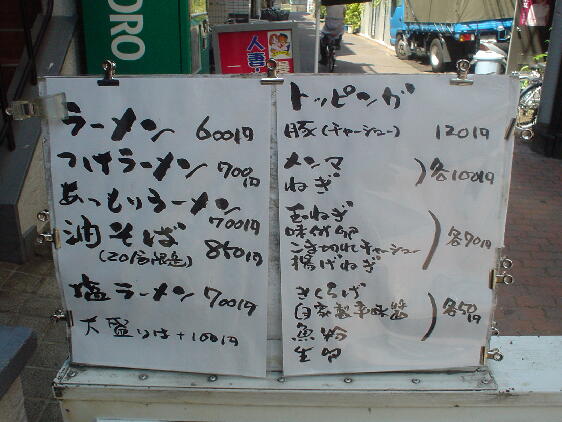 ORO
人妻
ラーメン 600円
つけラーメン 700円
あっもりラーメン 700円
油そば 850円
(20食限定)
塩ラーメン 700円
大盛りは+100円
トッピング
豚(チャーシュー) 120円
メンマ
ねぎ
各100円
玉ねぎ
味付卵
こま切れチャーシュー
揚げねぎ
各70円
きくらげ
自家製辛味醤
魚粉
生卵
各50円